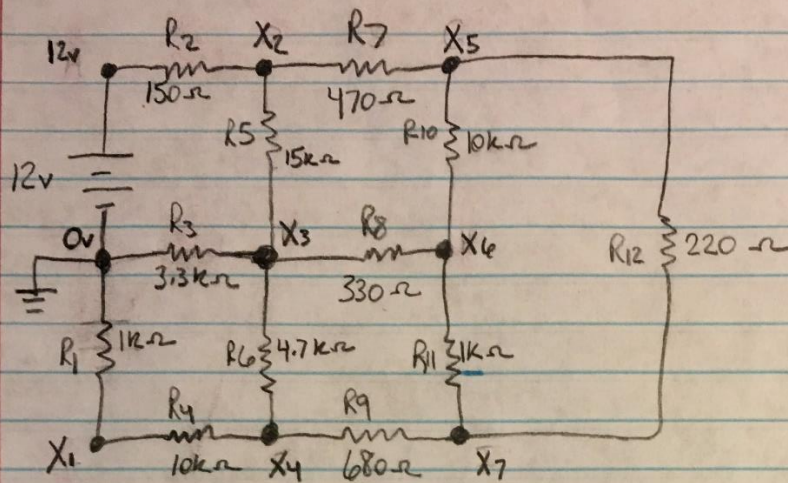 12v R2 X2 R7 X5
150Ω 470Ω
R5 15kΩ R10 10kΩ
12v
0v R3 X3 R8 X6 R12 220 Ω
3.3kΩ 330Ω
R1 1kΩ R6 4.7kΩ R11 1kΩ
R4 R9
X1 10kΩ X4 680Ω X7